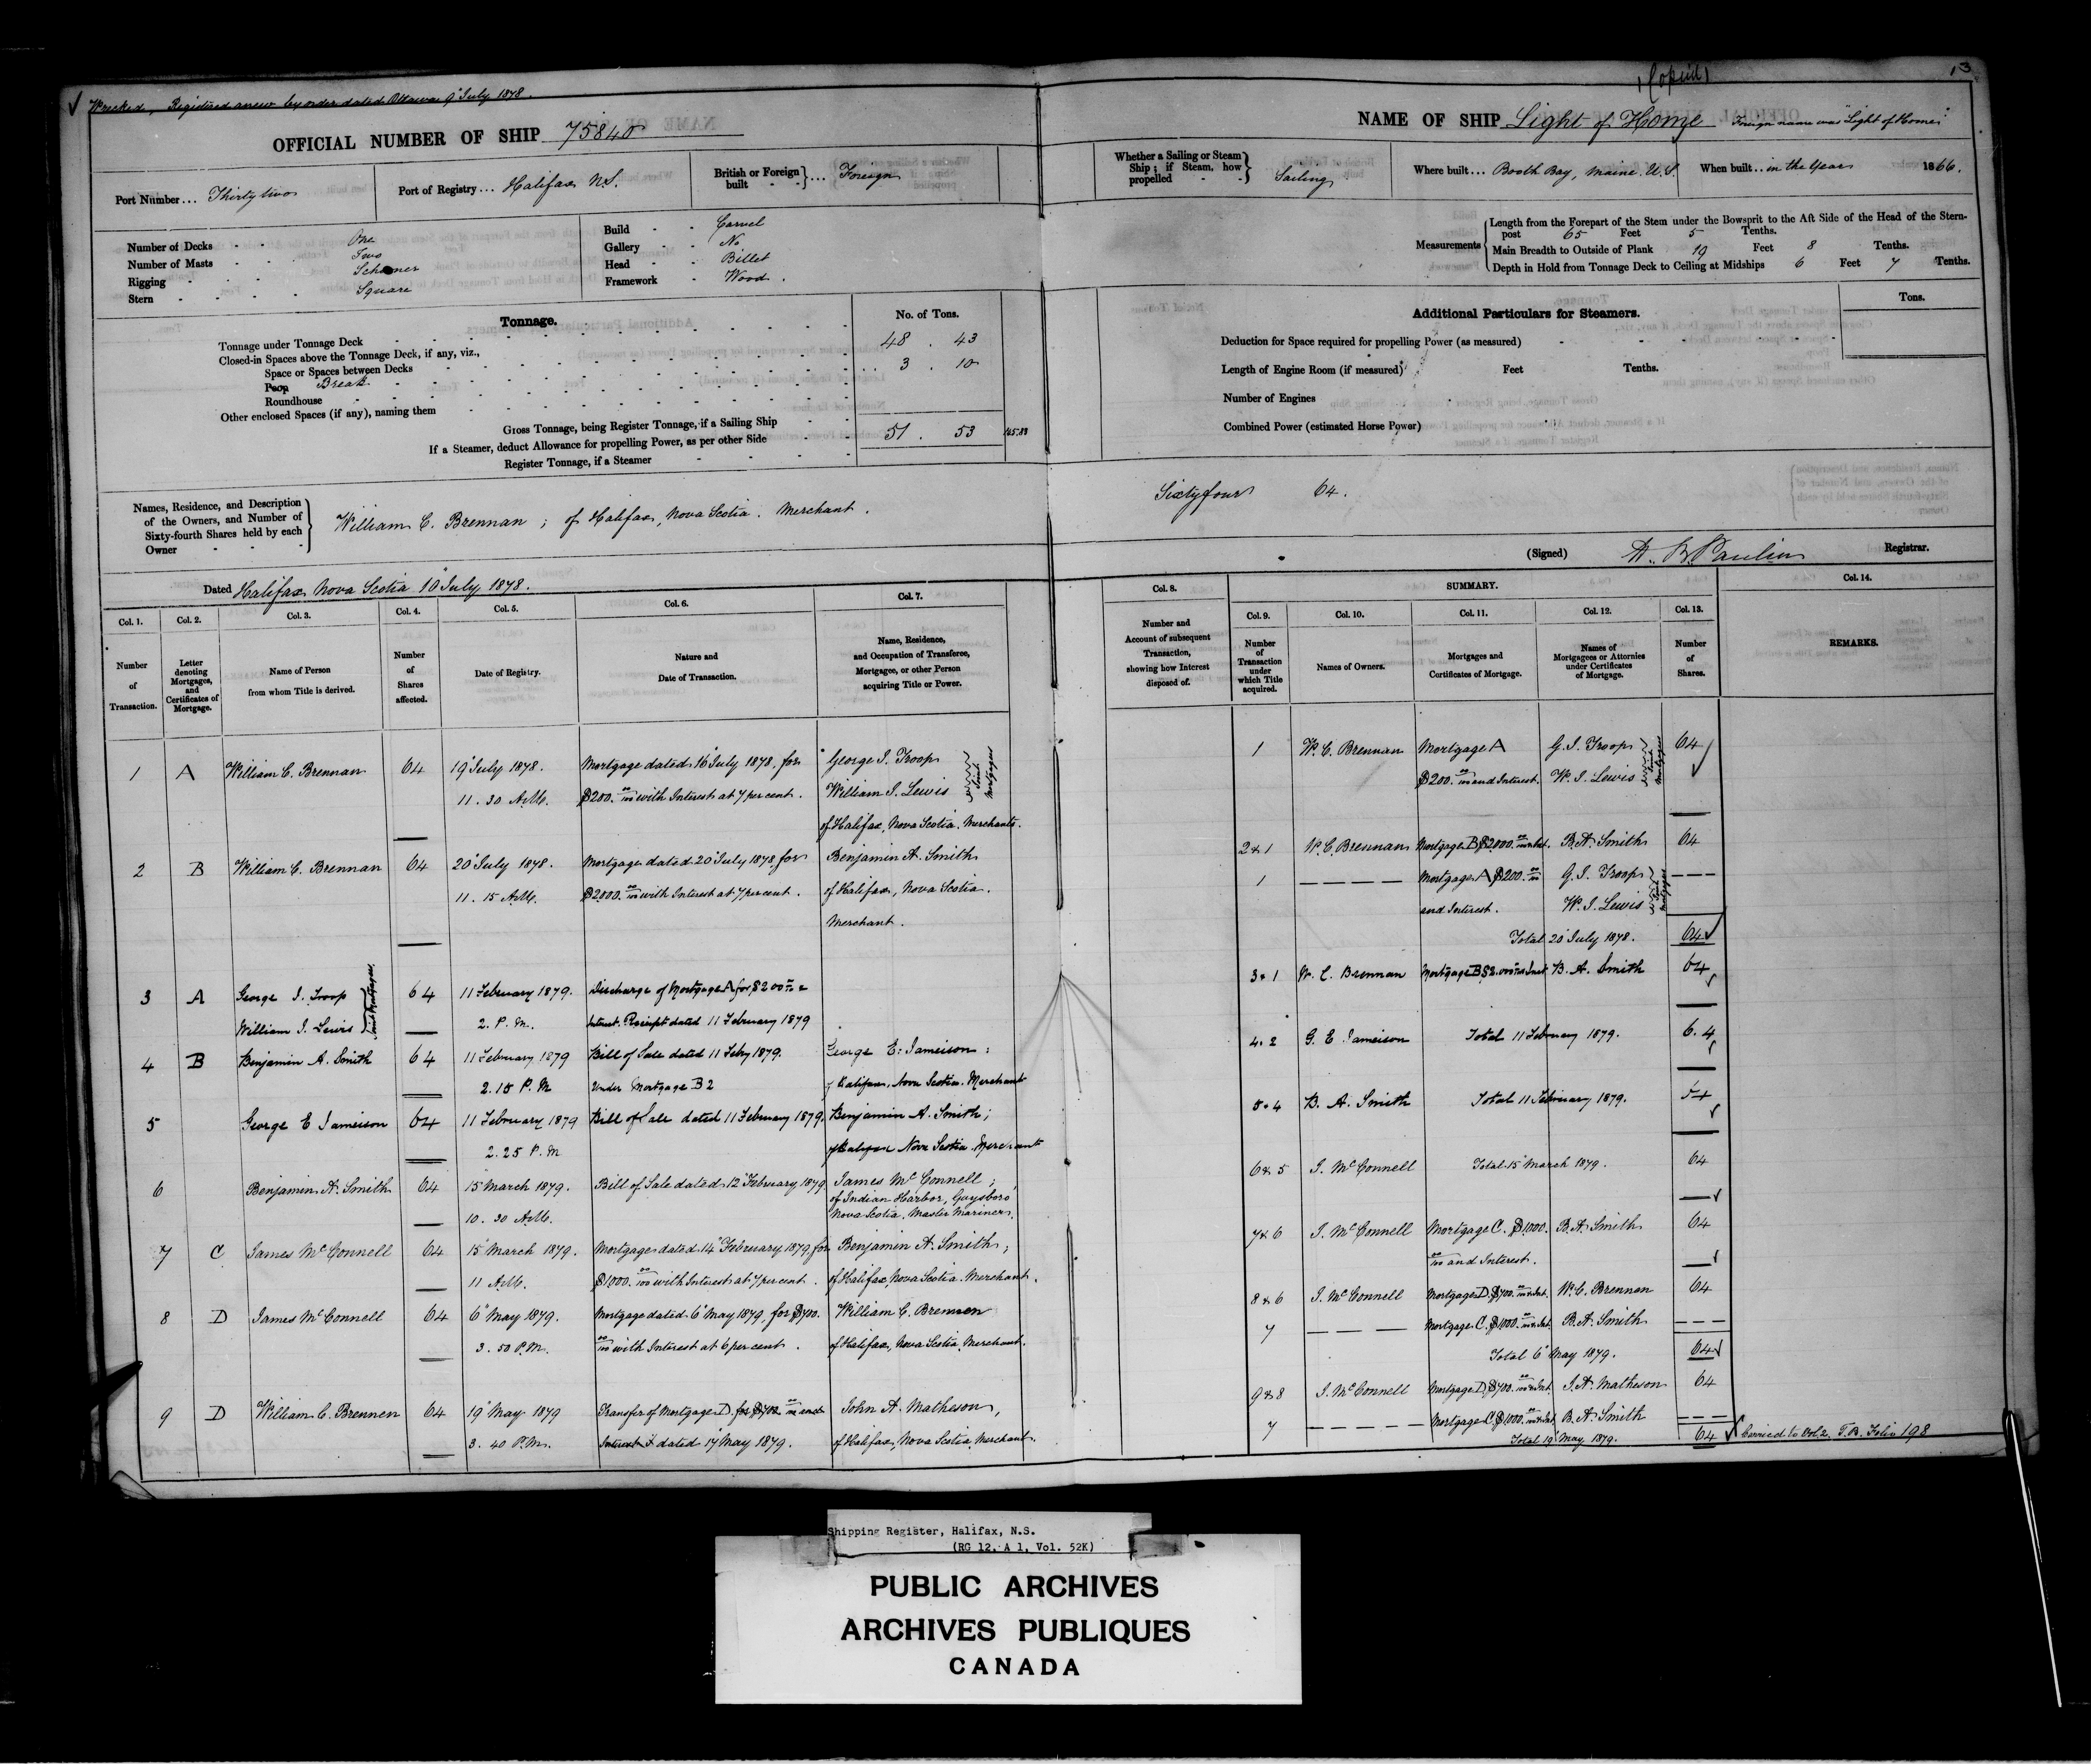 Wrecked, Registered anew by order dated Ottawa 9" July 1878.
OFFICIAL NUMBER OF SHIP 75840
Port Number... Thirty two
Port of Registry... Halifax N.S.
British or Foreign built ... Foreign
Number of Decks - - One
Number of Masts - - Two
Rigging - - Schooner
Stern - - Square
Build - - Carvel
Gallery - - No
Head - - Billet
Framework - Wood.
Tonnage.
No. of Tons.
Tonnage under Tonnage Deck 48 . 43
Closed-in Spaces above the Tonnage Deck, if any, viz.,
Space or Spaces between Decks
Poop Break ... 3 . 10
Roundhouse
Other enclosed Spaces (if any), naming them
Gross Tonnage, being Register Tonnage, if a Sailing Ship 51 . 53 145.83
If a Steamer, deduct Allowance for propelling Power, as per other Side
Register Tonnage, if a Steamer
Names, Residence, and Description of the Owners, and Number of Sixty-fourth Shares held by each Owner
William C. Brennan ; of Halifax, Nova Scotia. Merchant.
Dated Halifax Nova Scotia 10" July 1878.
Col. 1. Number of Transaction.
Col. 2. Letter denoting Mortgages, and Certificates of Mortgage.
Col. 3. Name of Person from whom Title is derived.
Col. 4. Number of Shares affected.
Col. 5. Date of Registry.
Col. 6. Nature and Date of Transaction.
Col. 7. Name, Residence, and Occupation of Transferee, Mortgagee, or other Person acquiring Title or Power.
1 A William C. Brennan 64 19" July 1878. Mortgage dated 16" July 1878, for George I. Troop
11 . 30 A.M. $200. 00/100 with Interest at 7 per cent. William I. Lewis Joint Mortgagees
of Halifax, Nova Scotia. Merchants.
2 B William C. Brennan 64 20" July 1878. Mortgage dated 20" July 1878 for Benjamin A. Smith
11 . 15 A.M. $2000. 00/100 with Interest at 7 per cent. of Halifax, Nova Scotia.
Merchant.
3 A George I. Troop 64 11 February 1879. Discharge of Mortgage A for $200 00/100 &
William I. Lewis Joint Mortgagees 2. P.M. Interest. Receipt dated 11 February 1879
4 B Benjamin A. Smith 64 11 February 1879 Bill of Sale dated 11 Feby 1879. George E. Jameison :
2.15 P.M Under Mortgage B 2 of Halifax, Nova Scotia. Merchant
5 George E Jameison 64 11 February 1879 Bill of Sale dated 11 February 1879. Benjamin A. Smith ;
2.25 P.M of Halifax Nova Scotia. Merchant
6 Benjamin A. Smith 64 15" March 1879. Bill of Sale dated 12" February 1879 James McConnell ;
10 . 30 A.M. of Indian Harbor, Guysboro'
Nova Scotia. Master Mariner.
7 C James McConnell 64 15" March 1879. Mortgage dated 14" February 1879, for Benjamin A. Smith ;
11 A.M. $1000. 00/100 with Interest at 7 per cent. of Halifax, Nova Scotia. Merchant.
8 D James McConnell 64 6" May 1879. Mortgage dated 6" May 1879, for $700. William C. Brennen
3 . 50 P.M. 00/100 with Interest at 6 per cent. of Halifax, Nova Scotia. Merchant.
9 D William C. Brennen 64 19" May 1879 Transfer of Mortgage D. for $700 00/100 and John A. Matheson,
3 . 40 P.M. Interest dated 17" May 1879. of Halifax, Nova Scotia, Merchant.
(Copied)
13
NAME OF SHIP Light of Home Foreign name was "Light of Home"
Whether a Sailing or Steam Ship ; if Steam, how propelled Sailing
Where built... Booth Bay, Maine. U.S.
When built.. in the Year 1866.
Measurements
Length from the Forepart of the Stem under the Bowsprit to the Aft Side of the Head of the Stern-
post 65 Feet 5 Tenths.
Main Breadth to Outside of Plank 19 Feet 8 Tenths.
Depth in Hold from Tonnage Deck to Ceiling at Midships 6 Feet 7 Tenths.
Additional Particulars for Steamers.
Tons.
Deduction for Space required for propelling Power (as measured)
Length of Engine Room (if measured) Feet Tenths.
Number of Engines
Combined Power (estimated Horse Power)
Sixty four 64.
(Signed) W. B. Paulin Registrar.
Col. 8. Number and Account of subsequent Transaction, showing how Interest disposed of.
SUMMARY.
Col. 9. Number of Transaction under which Title acquired.
Col. 10. Names of Owners.
Col. 11. Mortgages and Certificates of Mortgage.
Col. 12. Names of Mortgagees or Attornies under Certificates of Mortgage.
Col. 13. Number of Shares.
Col. 14. REMARKS.
1 W. C. Brennan Mortgage A G. I. Troop 64
$200. 00/100 and Interest. W. I. Lewis Joint Mortgagees
2 & 1 W. C. Brennan Mortgage B $2000. 00/100 & Int. B. A. Smith 64
1 Mortgage A $200. 00/100 G. I. Troop
and Interest. W. I. Lewis Joint Mortgagees
Total 20" July 1878. 64
3 & 1 W. C. Brennan Mortgage B $2.000 00/100 & Int B. A. Smith 64
4 . 2 G. E. Jameison Total 11 February 1879. 6.4
5 . 4 B. A. Smith Total 11 February 1879. 64
6 & 5 J. McConnell Total 15" March 1879. 64
7 & 6 J. McConnell Mortgage C. $1000. B. A. Smith 64
00/100 and Interest.
8 & 6 J. McConnell Mortgage D. $700. 00/100 & Int. W. C. Brennen 64
7 Mortgage C. $1000. 00/100 & Int. B. A. Smith
Total 6" May 1879. 64
9 & 8 J. McConnell Mortgage D. $700. 00/100 & Int. J. A. Matheson 64
7 Mortgage C. $1000. 00/100 & Int B. A. Smith
Total 19" May 1879. 64 Carried to Vol 2. T. B. Folio 198
Shipping Register, Halifax, N.S.
(RG 12, A 1, Vol. 52K)
PUBLIC ARCHIVES
ARCHIVES PUBLIQUES
CANADA